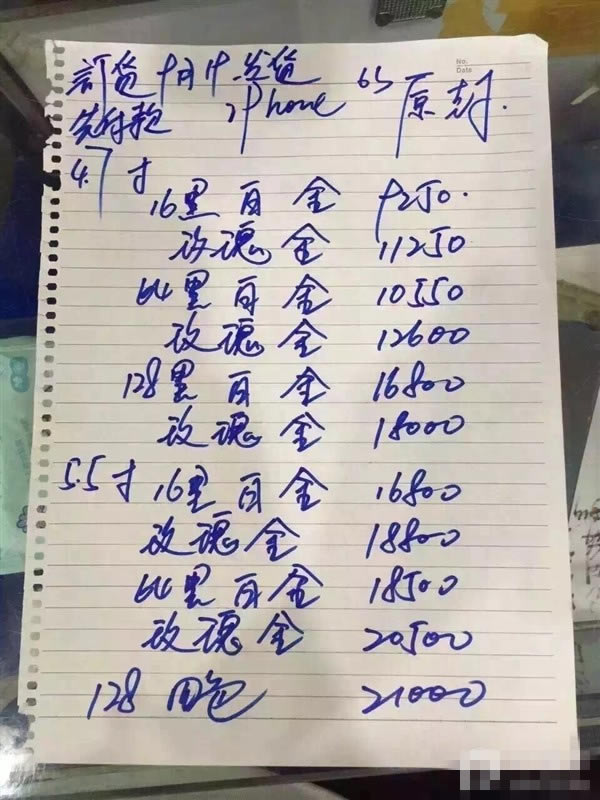 訂货 十月1号发货 iPhone 6S 原封.
先付款
No.
Date
4.7寸
16黑 白 金 9250.
玫瑰金 11250
64黑 白 金 10550
玫瑰金 12600
128黑 白 金 16800
玫瑰金 18000
5.5寸 16黑 白 金 16800
玫瑰金 18800
64黑 白 金 18500
玫瑰金 20500
128 四色 21000